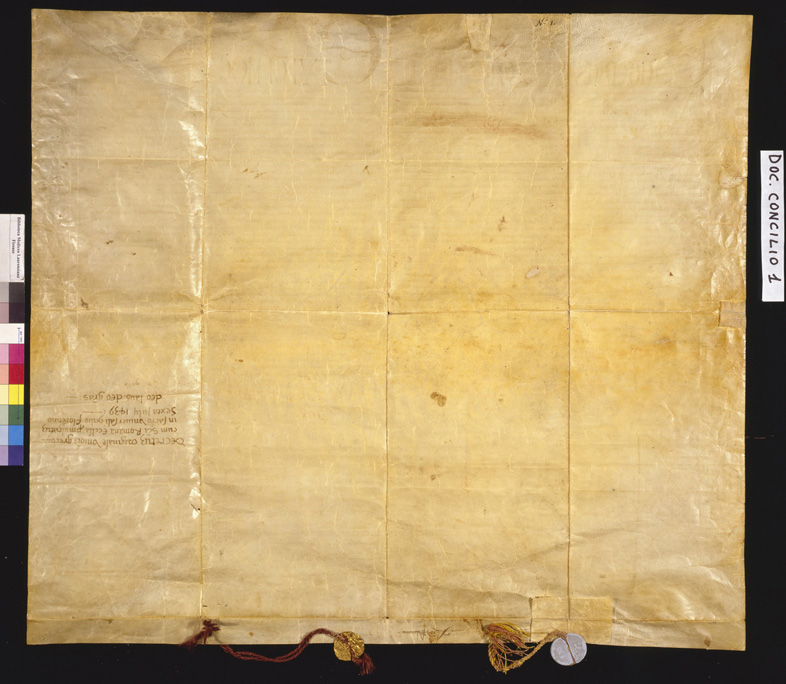 Nº 1.
DOC. CONCILIO 1
Biblioteca Medicea Laurenziana
Firenze
Decretum originale Unionis grecorum
cum Scā Romana Ecclā, promulgatum
in sacro Universali Florentino
Sexta Julij 1439.
deo laus deo grās